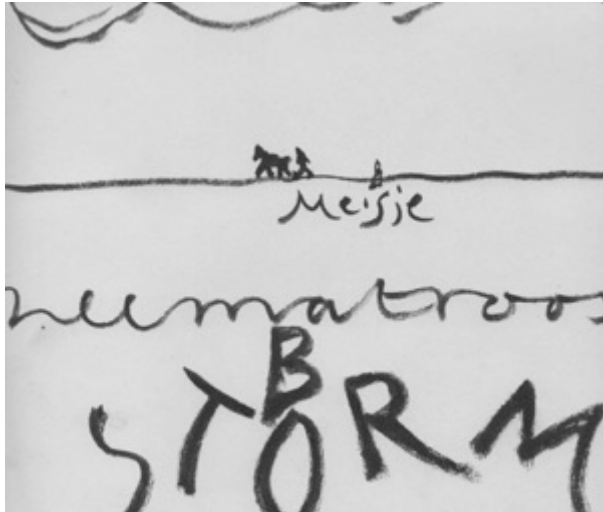 Meisje
neematroos
B
STORM